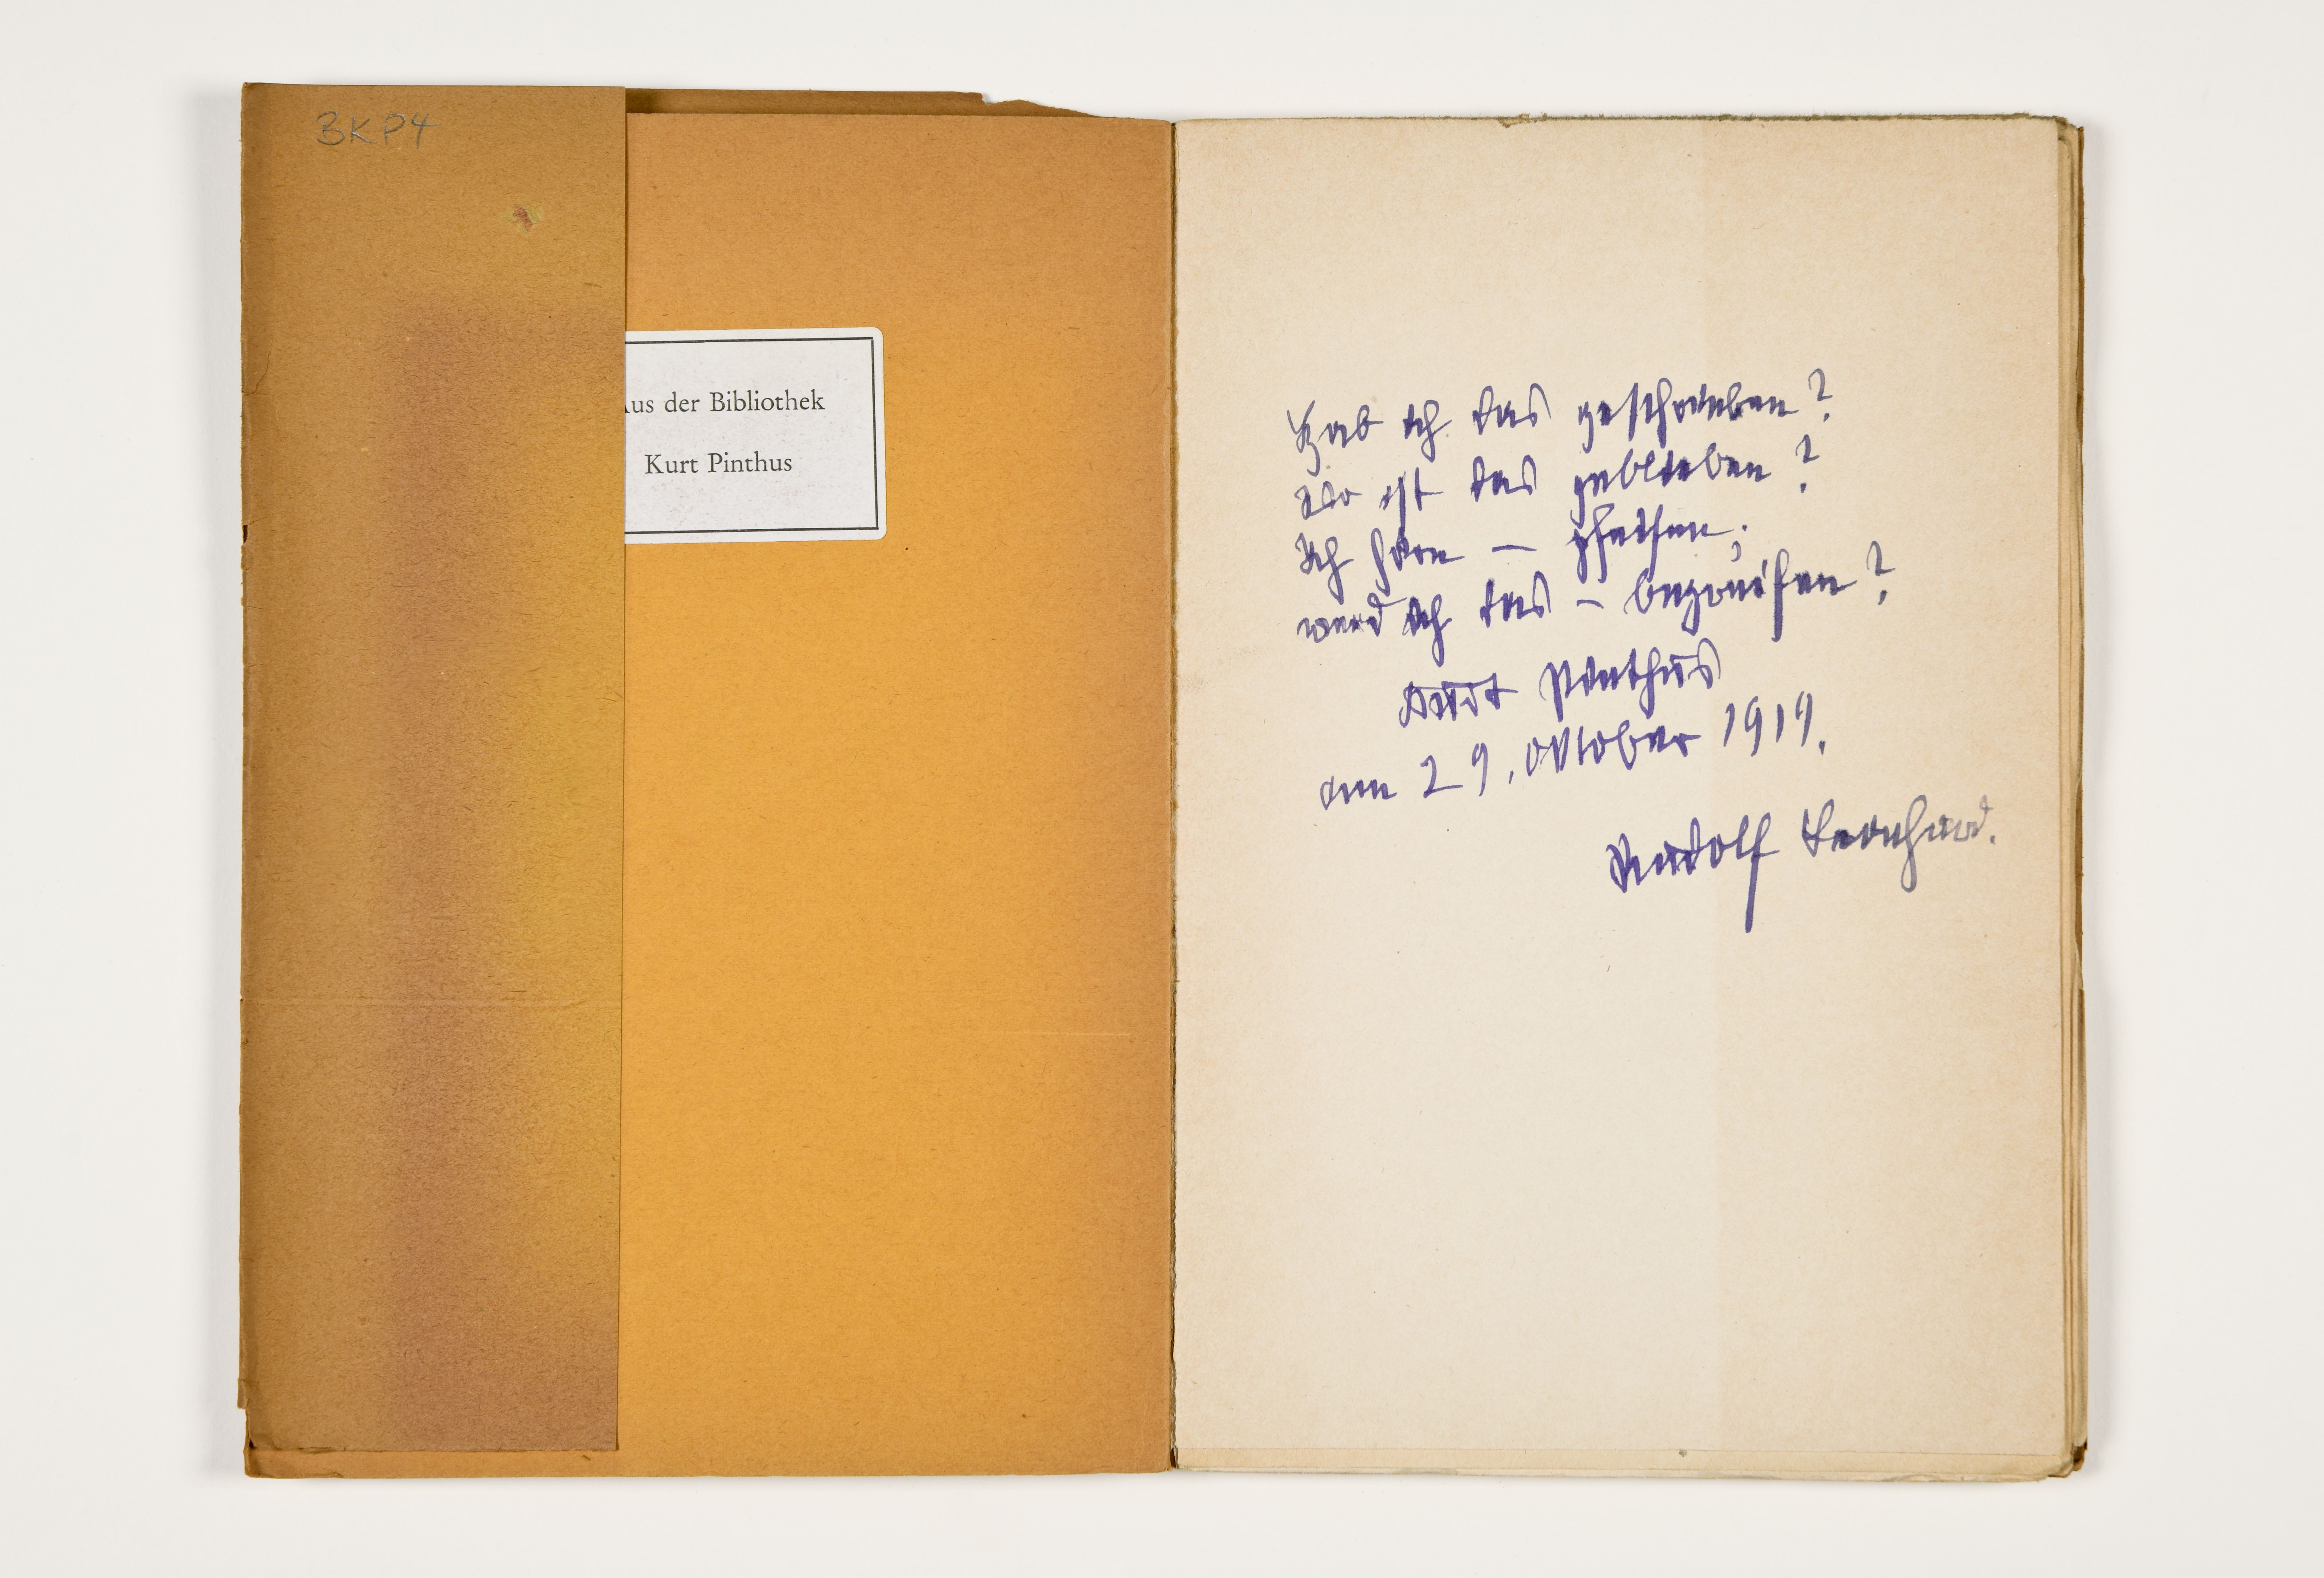 BKP4
Aus der Bibliothek
Kurt Pinthus
Hab ich das geschrieben?
wo ist das geblieben?
Ich höre — pfeifen;
werd ich das – begreifen?
Kurt Pinthus
am 29. Oktober 1919.
Rudolf Leonhard.